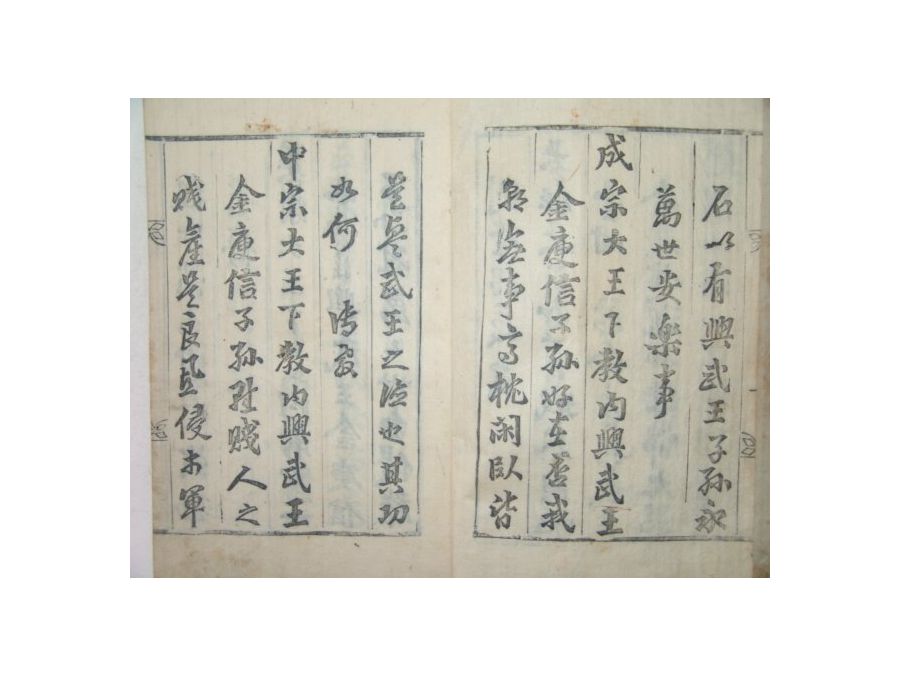 石以有興武王子孫永
萬世安樂事
成宗大王下教內興武王
金庾信子孫好在否我
無事高枕閑臥皆
是興武王之德也其功
如何
中宗大王下教內興武王
金庾信子孫雖賤人之
賤產是良置侵未軍